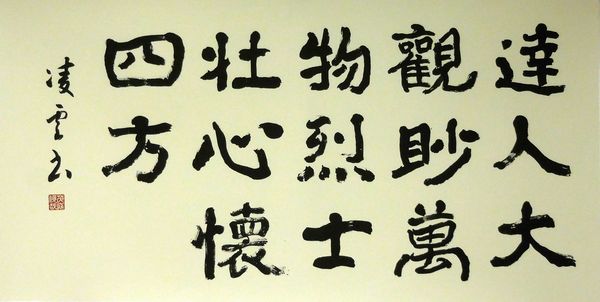 達人大
觀眇萬
物烈士
壮心懷
四方
凌雲书